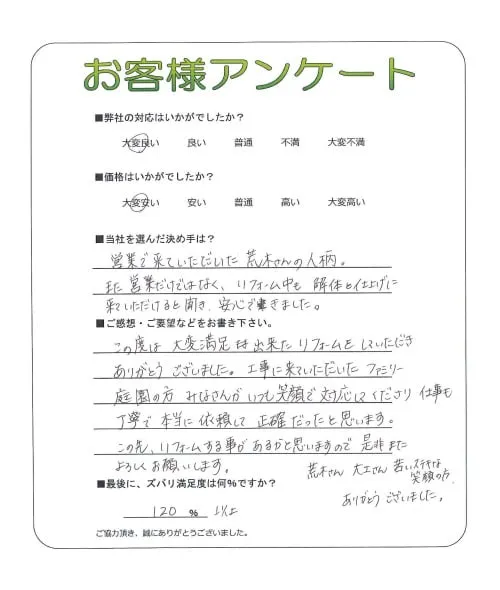 お客様アンケート
■弊社の対応はいかがでしたか？
大変良い 良い 普通 不満 大変不満
■価格はいかがでしたか？
大変安い 安い 普通 高い 大変高い
■当社を選んだ決め手は？
営業で来ていただいた 荒木さんの人柄。
また 営業だけではなく、リフォーム中も 解体と仕上げに
来ていただけると聞き、安心できました。
■ご感想・ご要望などをお書き下さい。
この度は 大変満足 出来た リフォームをしていただき
ありがとうございました。工事に来ていただいた ファミリー
庭園の方 みなさんがいつも笑顔で 対応してくださり 仕事も
丁寧で 本当に 依頼して 正確だったと思います。
この先、リフォームする事が あるかと思いますので 是非また
よろしくお願いします。
荒木さん 大工さん 若いステキな
笑顔の方
ありがとうございました。
■最後に、ズバリ満足度は何％ですか？
120 ％ 以上
ご協力頂き、誠にありがとうございました。